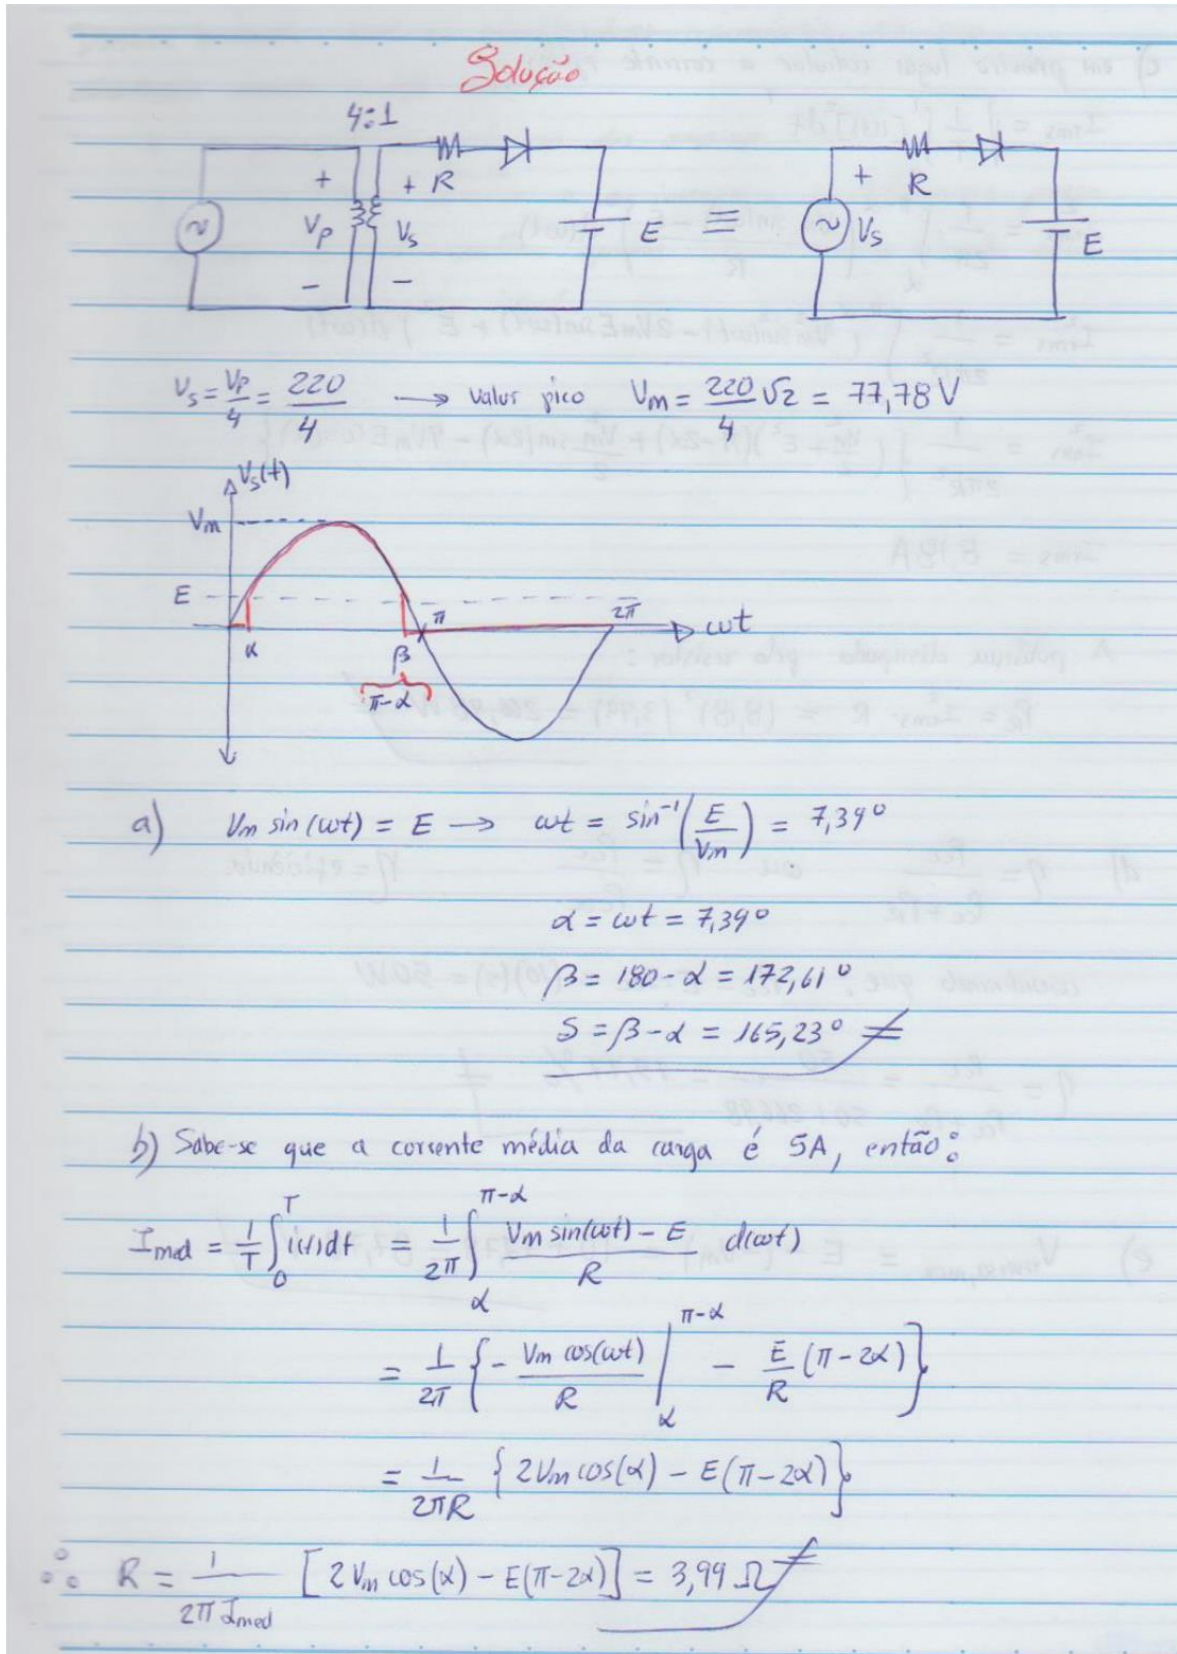 Solução
4:1
+ R + R
Vp Vs E ≡ Vs E
- -
Vs = Vp/4 = 220/4 → valor pico Vm = 220/4 √2 = 77,78 V
Vs(t)
Vm
E
π 2π ωt
α β
π-α
a) Vm sin(ωt) = E → ωt = sin⁻¹(E/Vm) = 7,39°
α = ωt = 7,39°
β = 180 - α = 172,61°
δ = β - α = 165,23°
b) Sabe-se que a corrente média da carga é 5A, então:
Imed = 1/T ∫₀ᵀ i(t)dt = 1/2π ∫_α^(π-α) (Vm sin(ωt) - E)/R d(ωt)
= 1/2π { - Vm cos(ωt)/R |_α^(π-α) - E/R (π-2α) }
= 1/2πR { 2Vm cos(α) - E(π-2α) }
∴ R = 1/(2π Imed) [2Vm cos(α) - E(π-2α)] = 3,99 Ω